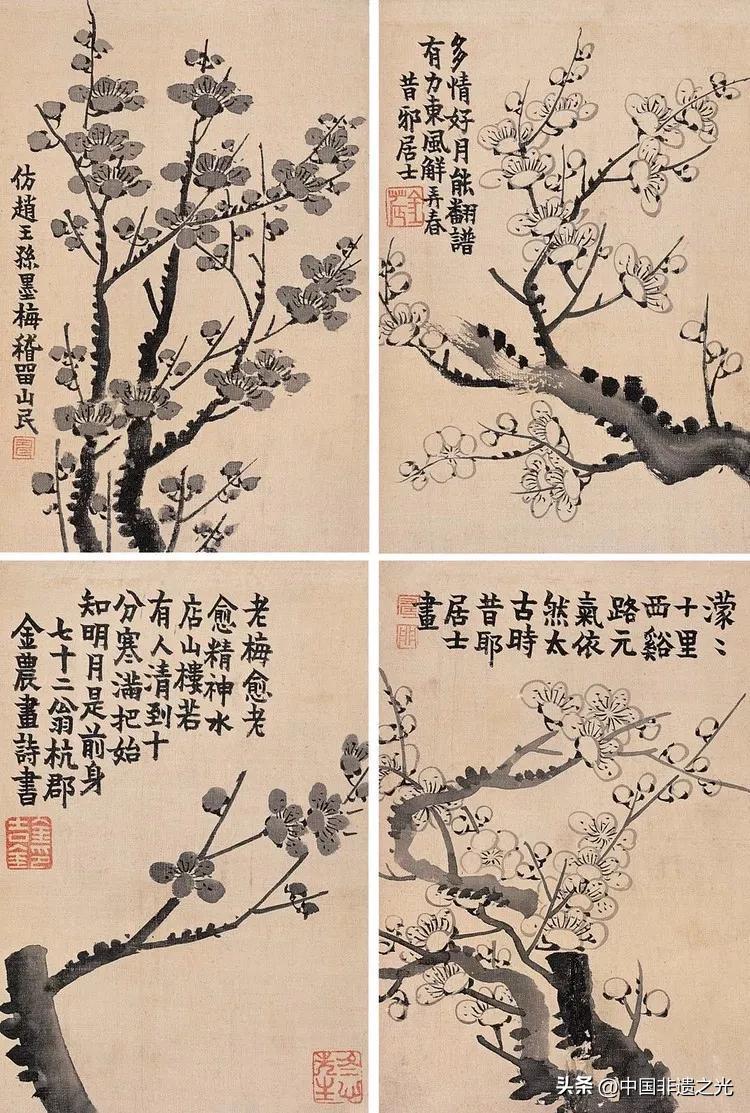 仿趙王孫墨梅稽留山民
多情好月能翻譜
有力東風解弄春
昔邪居士
老梅愈老
愈精神水
店山樓若
有人清到十
分寒滿把始
知明月是前身
七十二翁杭郡
金農畫詩書
濛〻
十里
西谿
路元
氣依
然太
古時
昔耶
居士
畫
金吉金
頭条 @中国非遗之光